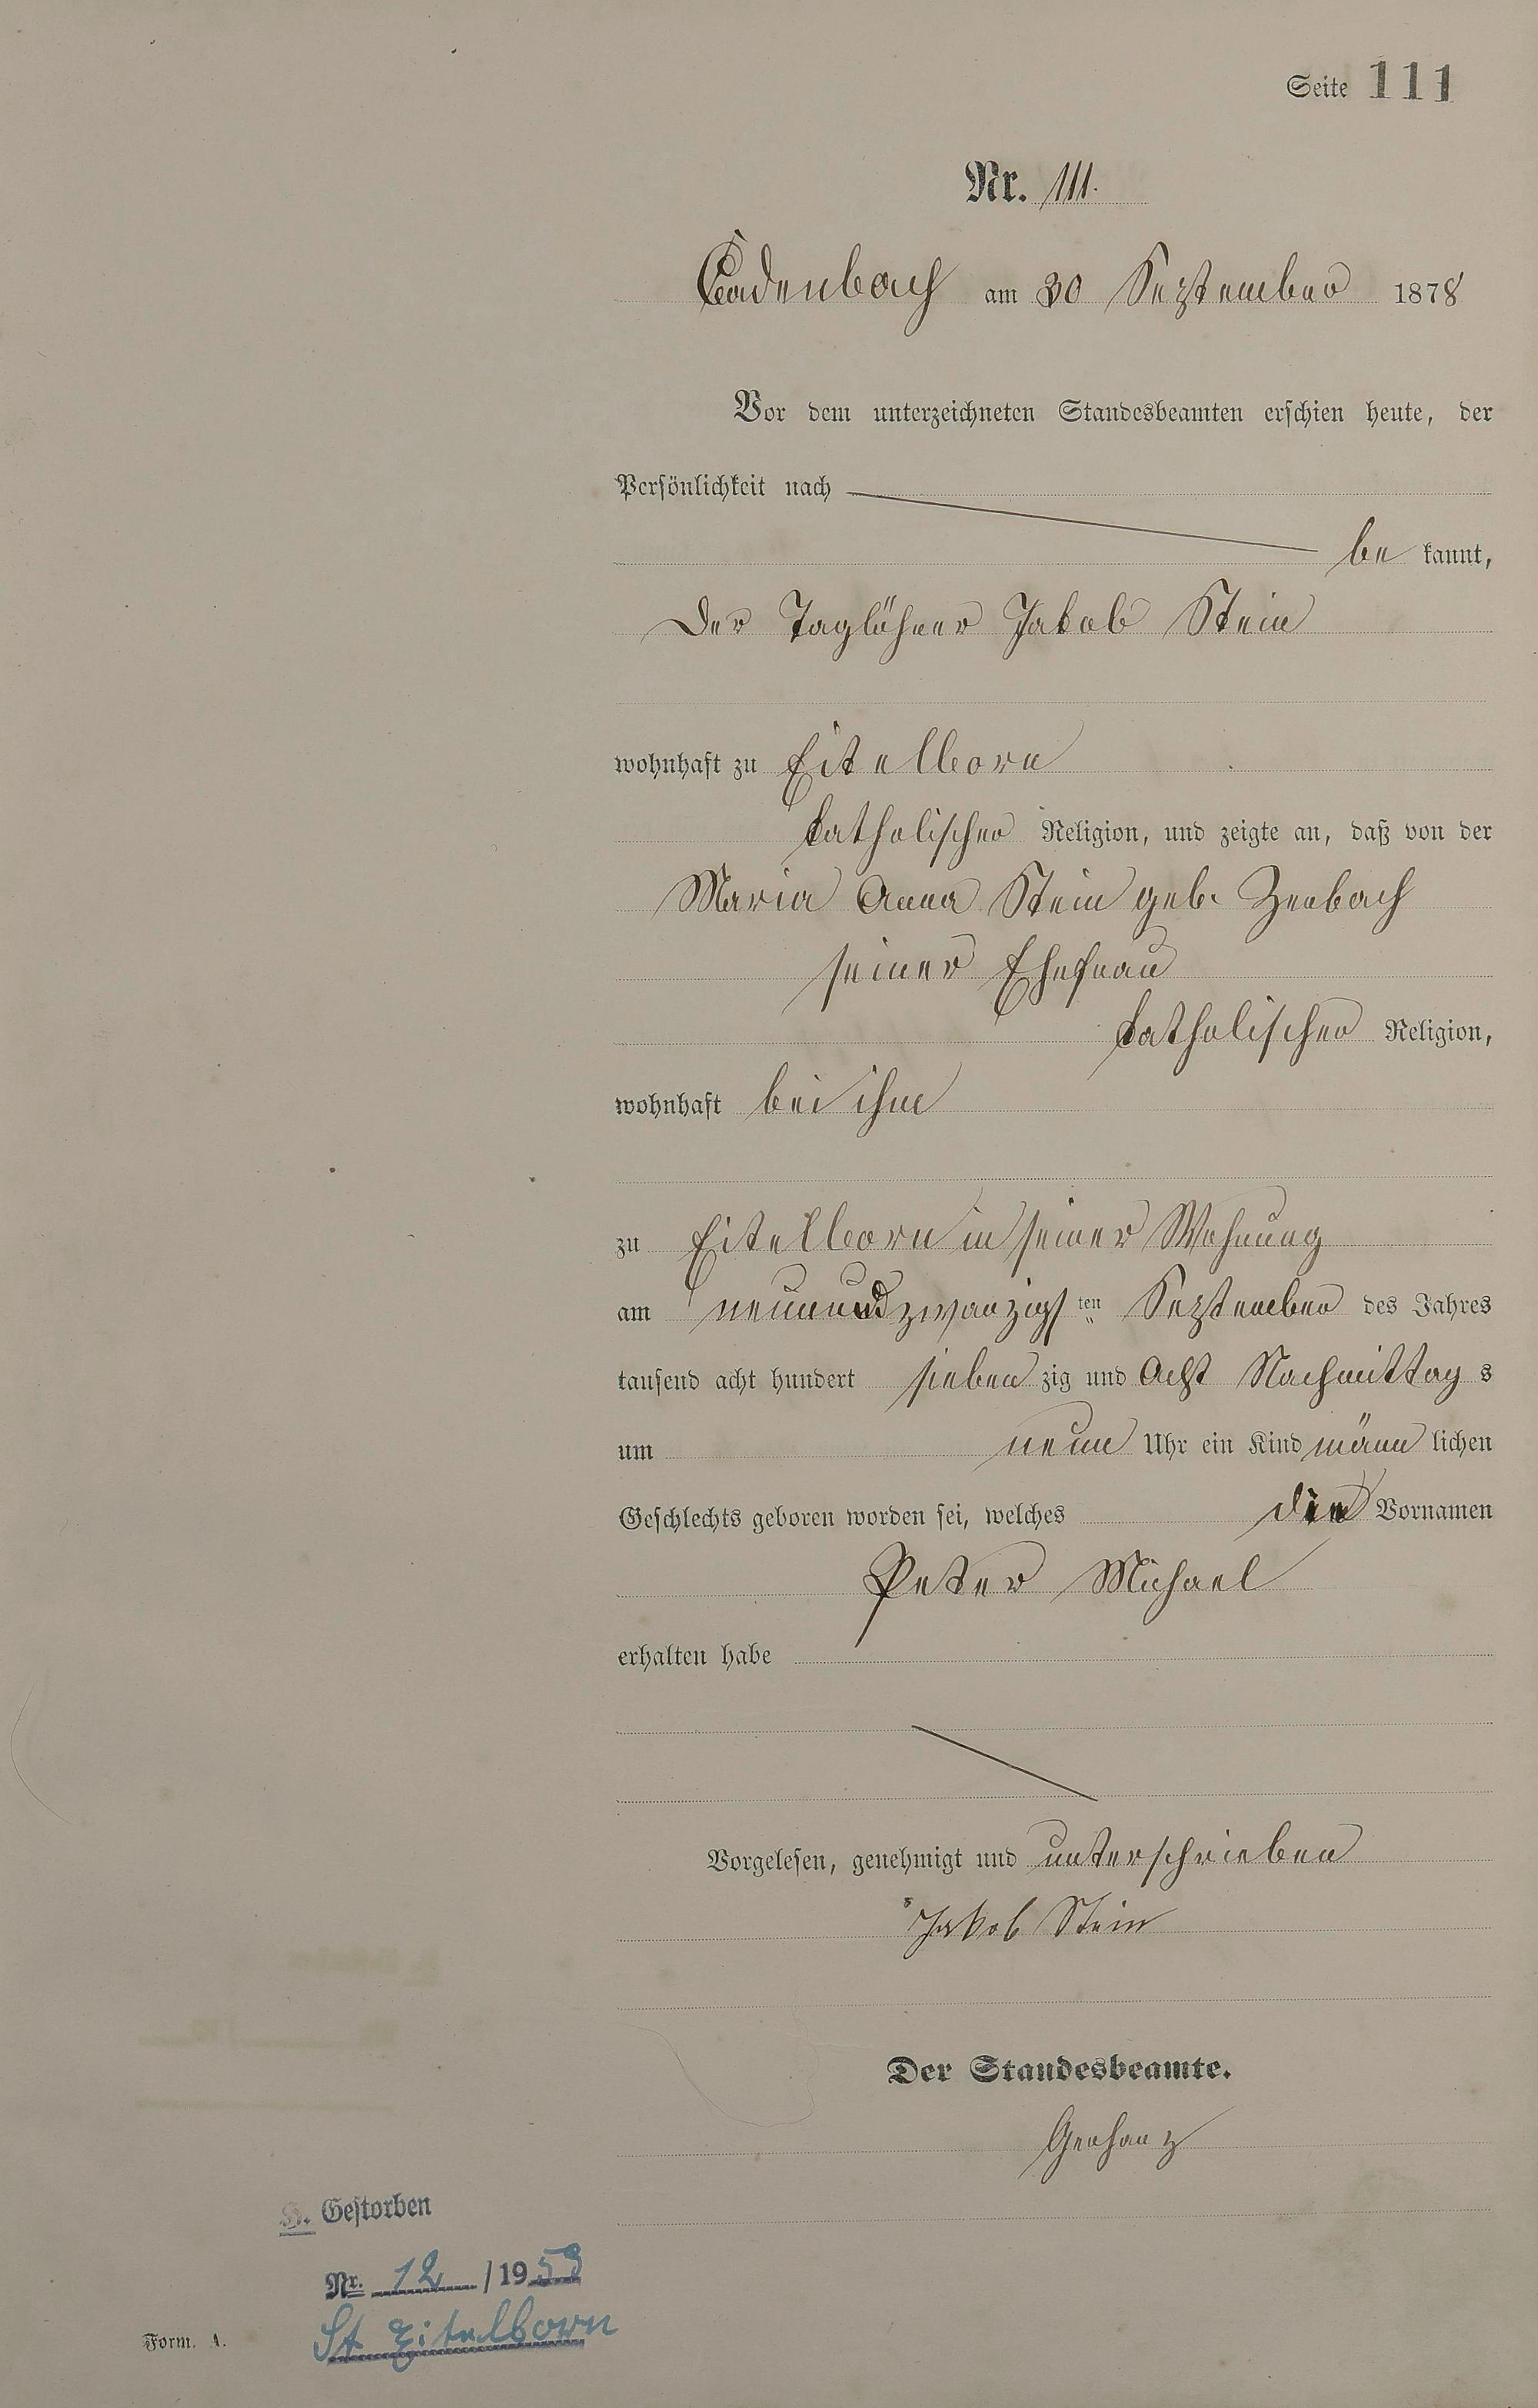 Seite 111
Nr. 111.
Cadenbach am 30 September 1878
Vor dem unterzeichneten Standesbeamten erschien heute, der
Persönlichkeit nach
be kannt,
Der Taglöhner Jakob Stein
wohnhaft zu Eitelborn
katholischer Religion, und zeigte an, daß von der
Maria Anna Stein geb.
seiner Ehefrau
katholischer Religion,
wohnhaft bei ihm
zu Eitelborn in seiner Wohnung
am neunundzwanzigsten September des Jahres
tausend acht hundert sieben zig und Acht Nachmittag s
um neun Uhr ein Kind männ lichen
Geschlechts geboren worden sei, welches die Vornamen
Peter Michael
erhalten habe
Vorgelesen, genehmigt und unterschrieben
Jakob Stein
Der Standesbeamte.
H. Gestorben
Nr. 12 / 1953
St Eitelborn
Form. A.